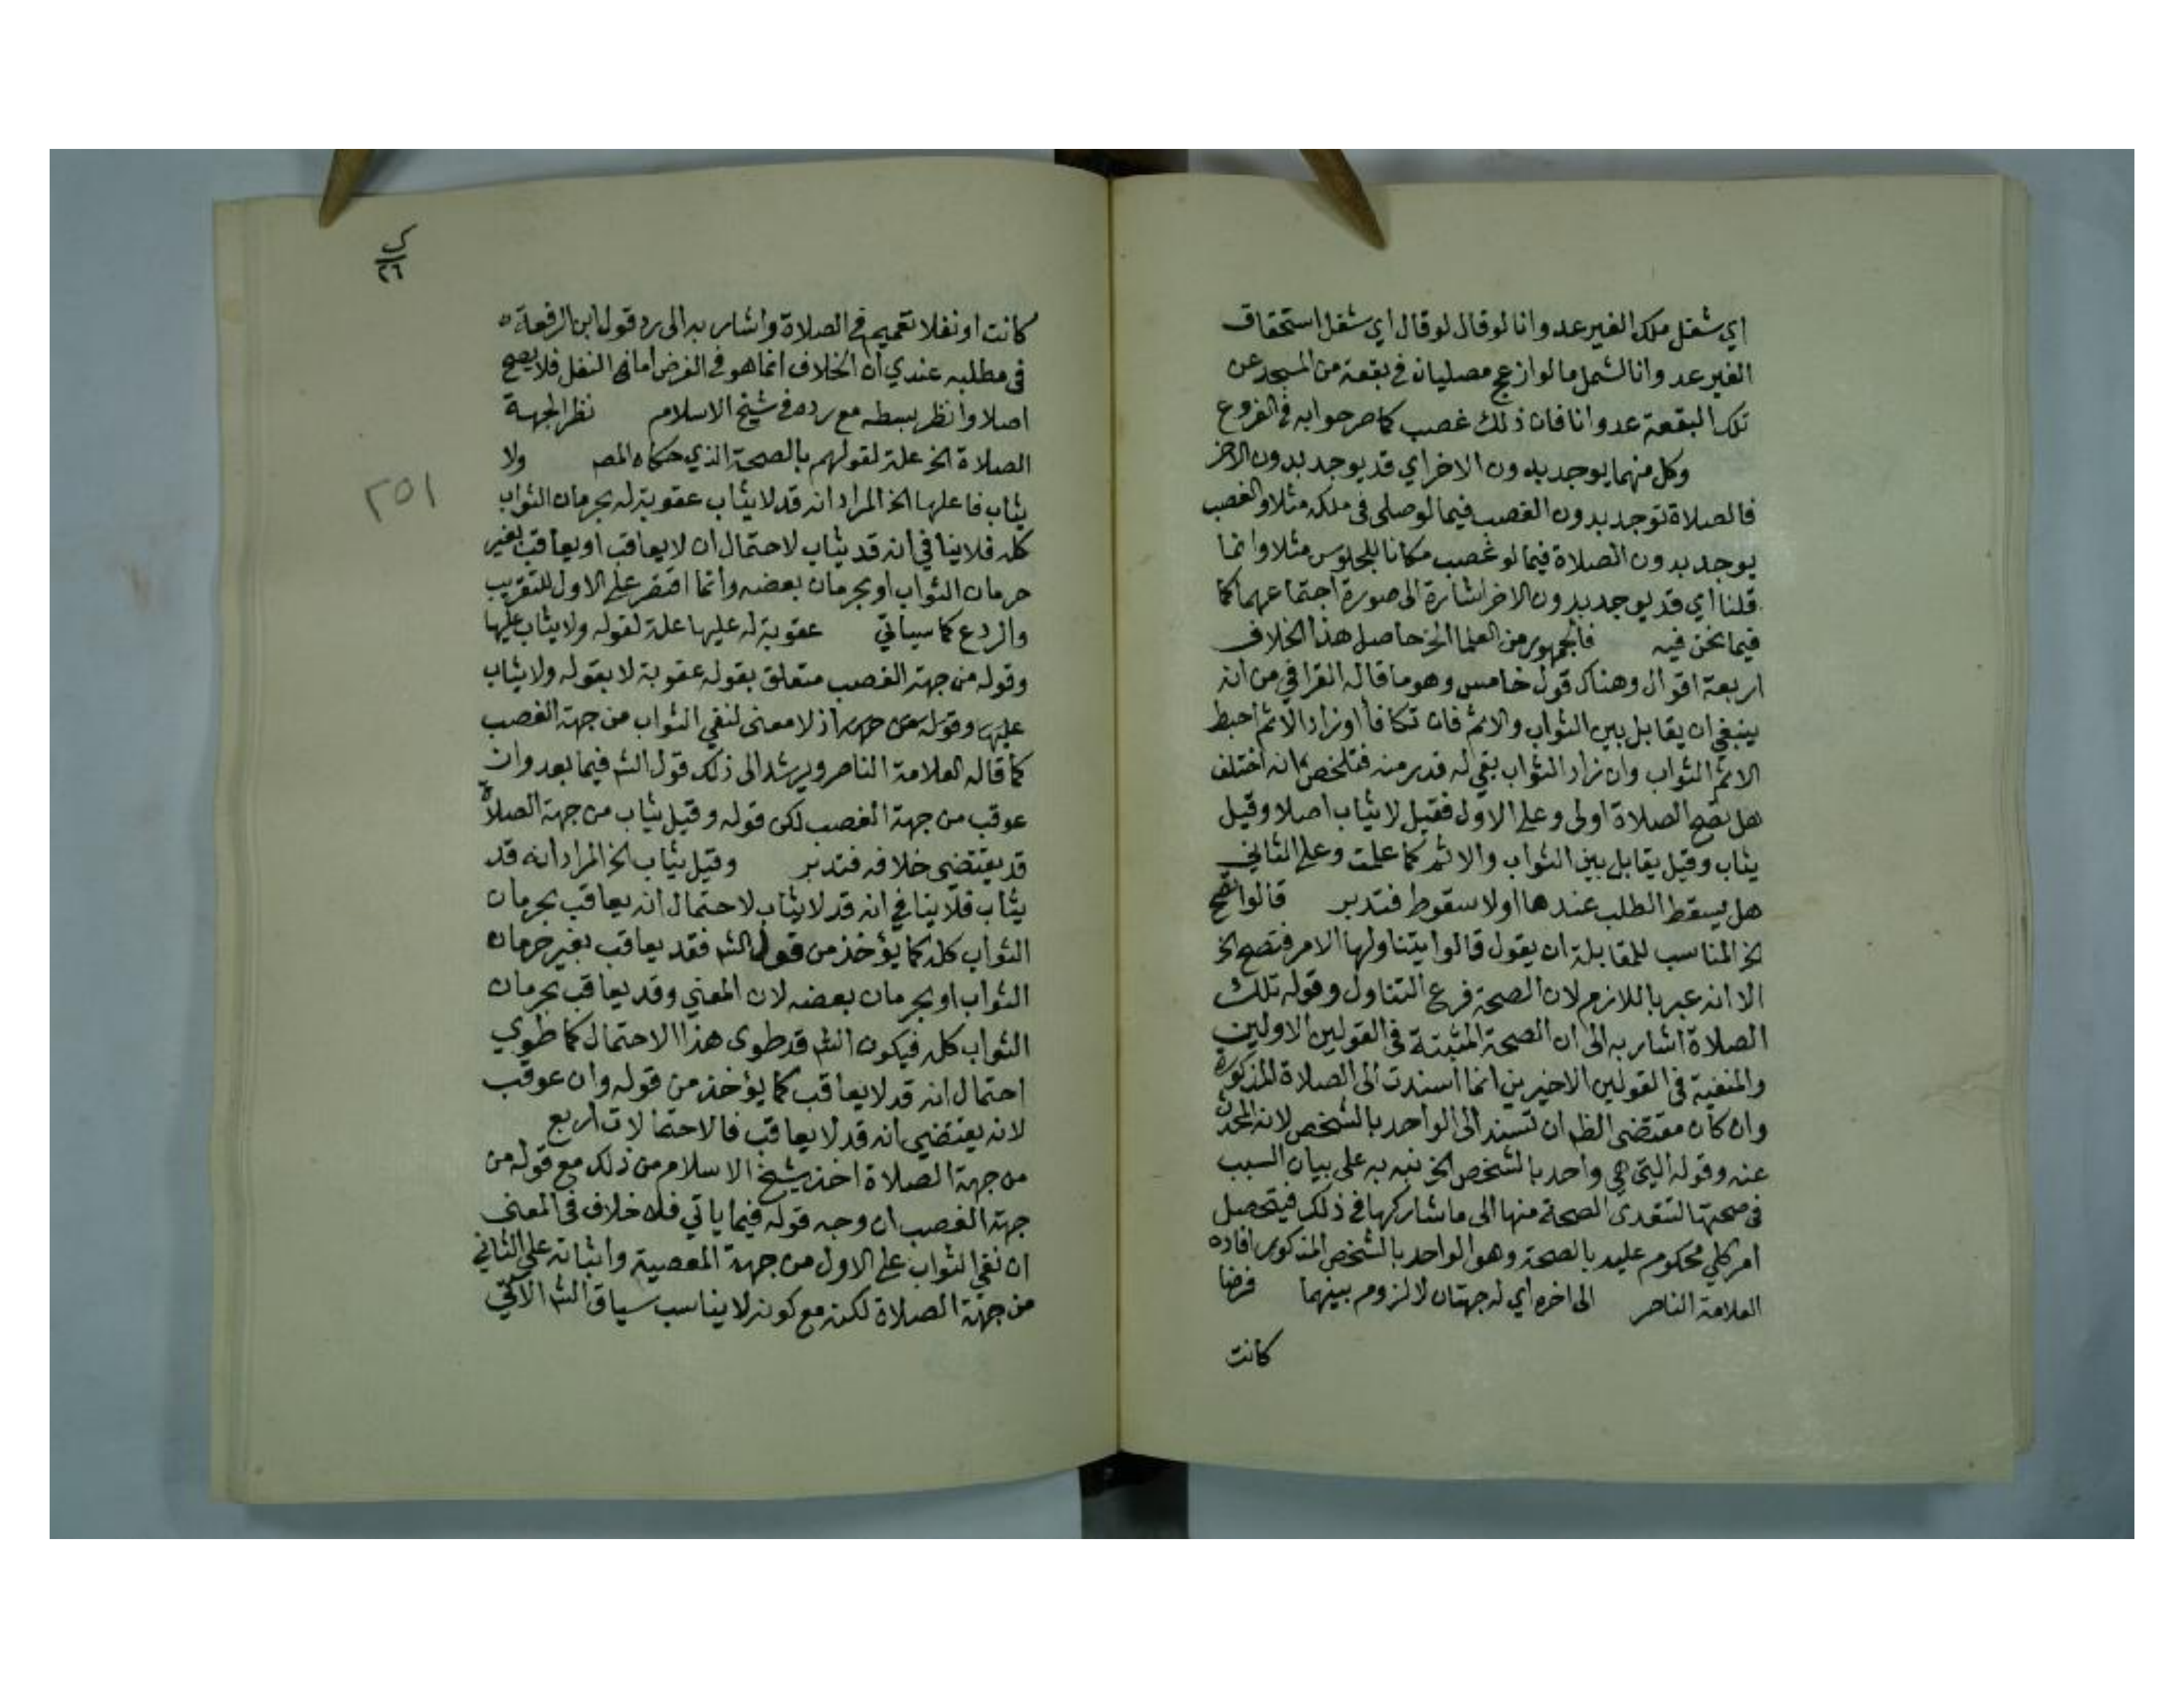 اي شغل ملك الغير عدوانا لو قال لو قال اي شغل استحقاق
الغير عدوانا لشمل ما لو ازعج مصليان في بقعة من المسجد عن
تلك البقعة عدوانا فان ذلك غصب كما صرحوا به في الفروع
وكل منهما يوجد بدون الاخر اي قد يوجد بدون الاخر
فالصلاة توجد بدون الغصب فيما لو صلى في ملكه مثلا والغصب
يوجد بدون الصلاة فيما لو غصب مكانا للجلوس مثلا وانما
قلنا اي قد يوجد بدون الاخر اشارة الى صورة اجتماعهما كما
فيما نحن فيه فالجمهور من العلما الخ حاصل هذا الخلاف
اربعة اقوال وهناك قول خامس وهو ما قاله القرافي من انه
ينبغي ان يقابل بين الثواب والاثم فان تكافا او زاد الاثم احبط
الاثم الثواب وان زاد الثواب بقي له قدر منه فتلخص انه اختلف
هل تصح الصلاة اولى وعلى الاول فقيل لا يثاب اصلا وقيل
يثاب وقيل يقابل بين الثواب والاثم كما علمت وعلى الثاني
هل يسقط الطلب عندها اولا سقوط فتدبر قالوا تصح
الخ المناسب للمقابلة ان يقول قالوا يتناولها الامر فتصح الخ
الا انه عبر باللازم لان الصحة فرع التناول وقوله تلك
الصلاة اشار به الى ان الصحة المثبتة في القولين الاولين
والمنفية في القولين الاخيرين انما اسندت الى الصلاة المذكورة
وان كان مقتضى الظ ان تسند الى الواحد بالشخص لانه المحدث
عنه وقوله التي هي واحد بالشخص الخ نبه به على بيان السبب
في صحتها لتتعدى الصحة منها الى ما شاركها في ذلك فيتحصل
امر كلي محكوم عليه بالصحة وهو الواحد بالشخص المذكور افاده
العلامة الناصر الى اخره اي له جهتان لا لزوم بينهما فرضا
كانت
ك
٢٦
٢٥١
كانت او نفلا تعميم في الصلاة واشار به الى رد قول ابن الرفعة
في مطلبه عندي ان الخلاف انما هو في الفرض اما في النفل فلا يصح
اصلا وانظر بسطه مع رده في شيخ الاسلام نظرا لجهة
الصلاة الخ علة لقولهم بالصحة الذي حكاه المص ولا
يثاب فاعلها الخ المراد انه قد لا يثاب عقوبة له بحرمان الثواب
كله فلا ينافي انه قد يثاب لاحتمال ان لا يعاقب او يعاقب بغير
حرمان الثواب او بحرمان بعضه وانما اقتصر على الاول للتقريب
والردع كما سياتي عقوبة له عليها علة لقوله ولا يثاب عليها
وقوله من جهة الغصب متعلق بقوله عقوبة لا بقوله ولا يثاب
عليها وقوله من جهة اذ لا معنى لنفي الثواب من جهة الغصب
كما قاله العلامة الناصر ويرشد الى ذلك قول الش فيما بعد وان
عوقب من جهة الغصب لكن قوله وقيل يثاب من جهة الصلاة
قد يقتضي خلافه فتدبر وقيل يثاب الخ المراد انه قد
يثاب فلا ينافي انه قد لا يثاب لاحتمال انه يعاقب بحرمان
الثواب كله كما يؤخذ من قول الش فقد يعاقب بغير حرمان
الثواب او بحرمان بعضه لان المعني وقد يعاقب بحرمان
الثواب كله فيكون الش قد طوى هذا الاحتمال كما طوي
احتمال انه قد لا يعاقب كما يؤخذ من قوله وان عوقب
لانه يقتضي انه قد لا يعاقب فالاحتمالات اربع
من جهة الصلاة اخذ شيخ الاسلام من ذلك مع قوله من
جهة الغصب ان وجه قوله فيما ياتي فلا خلاف في المعنى
ان نفي الثواب على الاول من جهة المعصية واثباته على الثاني
من جهة الصلاة لكنه مع كونه لا يناسب سياق الش الاتي